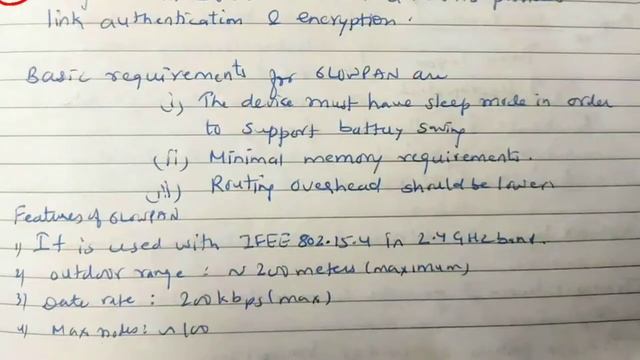 link authentication & encryption.
Basic requirements for 6LOWPAN are
i) The device must have sleep mode in order
to support battery saving
(ii) Minimal memory requirements.
iii) Routing overhead should be lower
Features of 6LOWPAN
1) It is used with IEEE 802.15.4 in 2.4 GHz band.
2) outdoor range : ~ 200 meters (maximum)
3) Data rate : 200kbps (max)
4) Max nodes: ~ 100